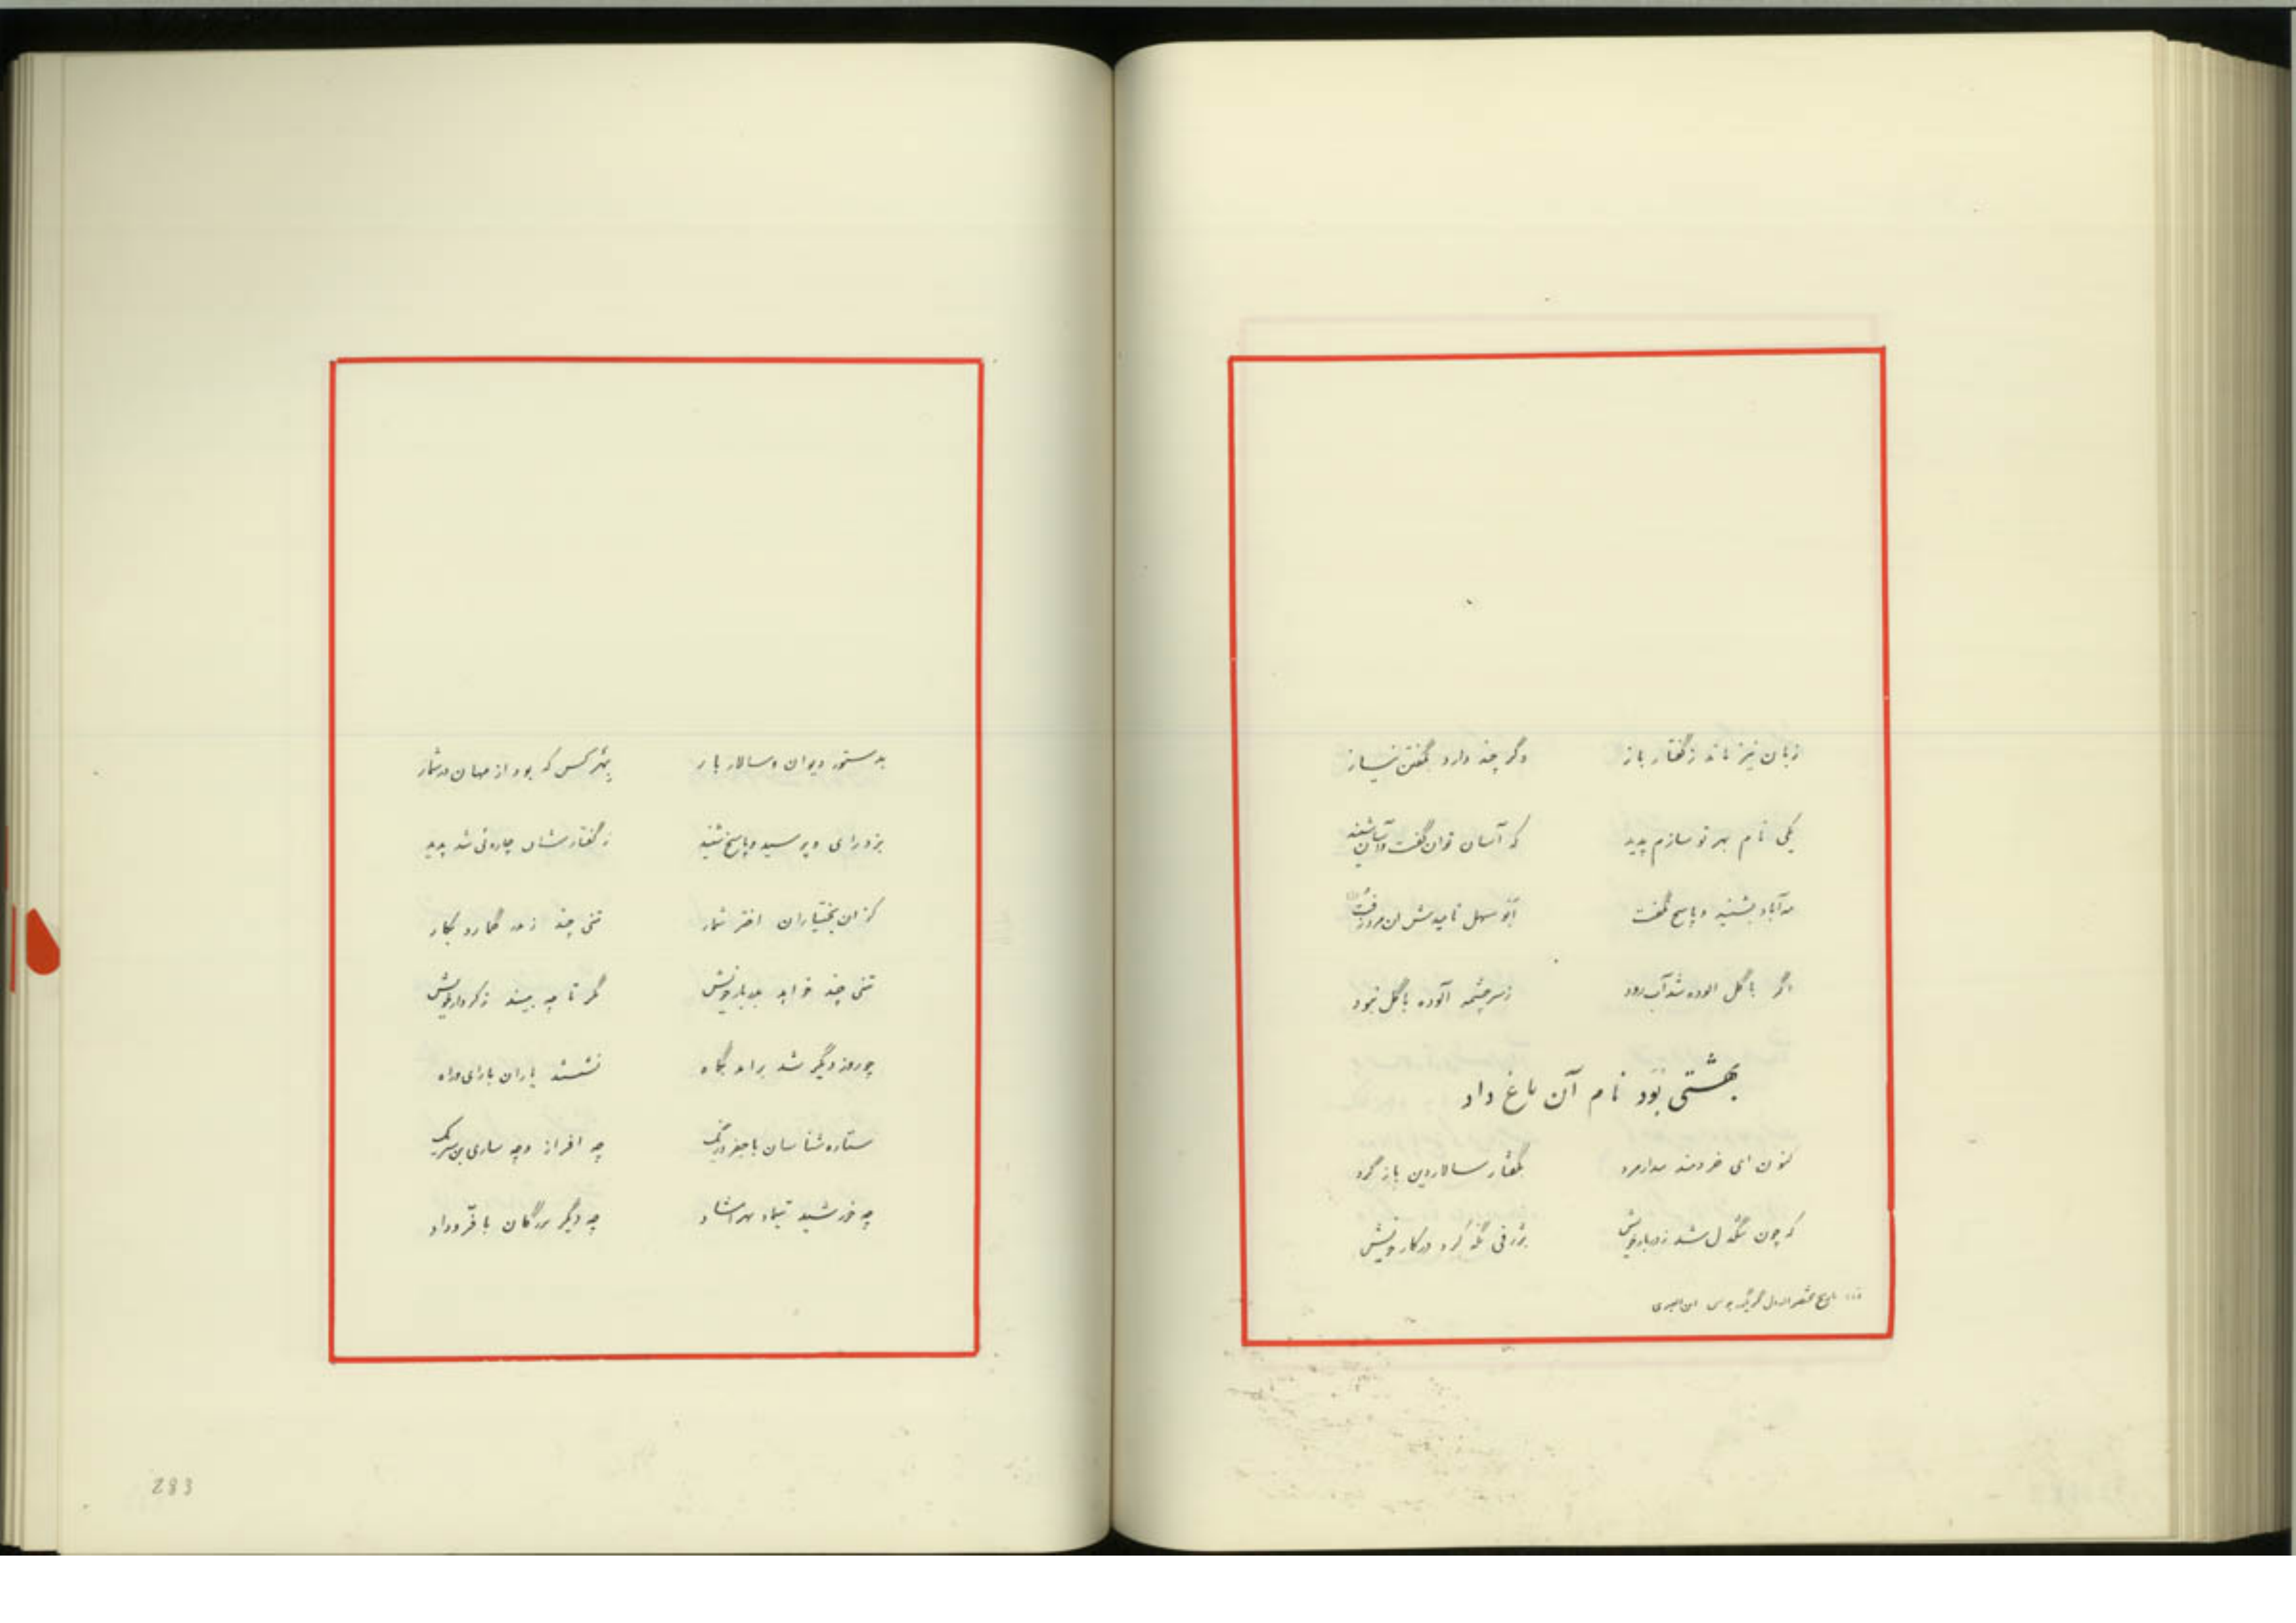 زبان نیز ماند ز گفتار باز وگر چند دارد بگفتن نیاز
یکی نام بهر تو سازم پدید که آسان توان گفت و آسان شنید
مه‌آباد بشنید و پاسخ نگفت ابو سهل نامیدش آن مرد
اگر با گل آلوده شد آب رود ز سرچشمه آلوده با گل نبود
بهشتی بود نام آن باغ داد
کنون ای خردمند بیدار مرد بگفتار سالار دین باز گرد
که چون تنگدل شد ز دربار خویش بژرفی نگه کرد در کار خویش
تاریخ مختصر الدول ابن العبری
بدستور دیوان و سالار بار بهر کس که بود از مهان در شمار
بزد رای و پرسید و پاسخ شنید ز گفتارشان چاره‌ئی شد پدید
کز ان بختیاران اختر شمار تنی چند گمارد بکار
تنی چند خواهد بدربار خویش مگر تا چه بیند ز کردار خویش
چو روز دیگر شد برآمد بگاه نشستند یاران با رای و راه
ستاره شناسان با چه افراز و چه ساری بن
چه خورشید چه دیگر بزرگان با فرّ و داد
283